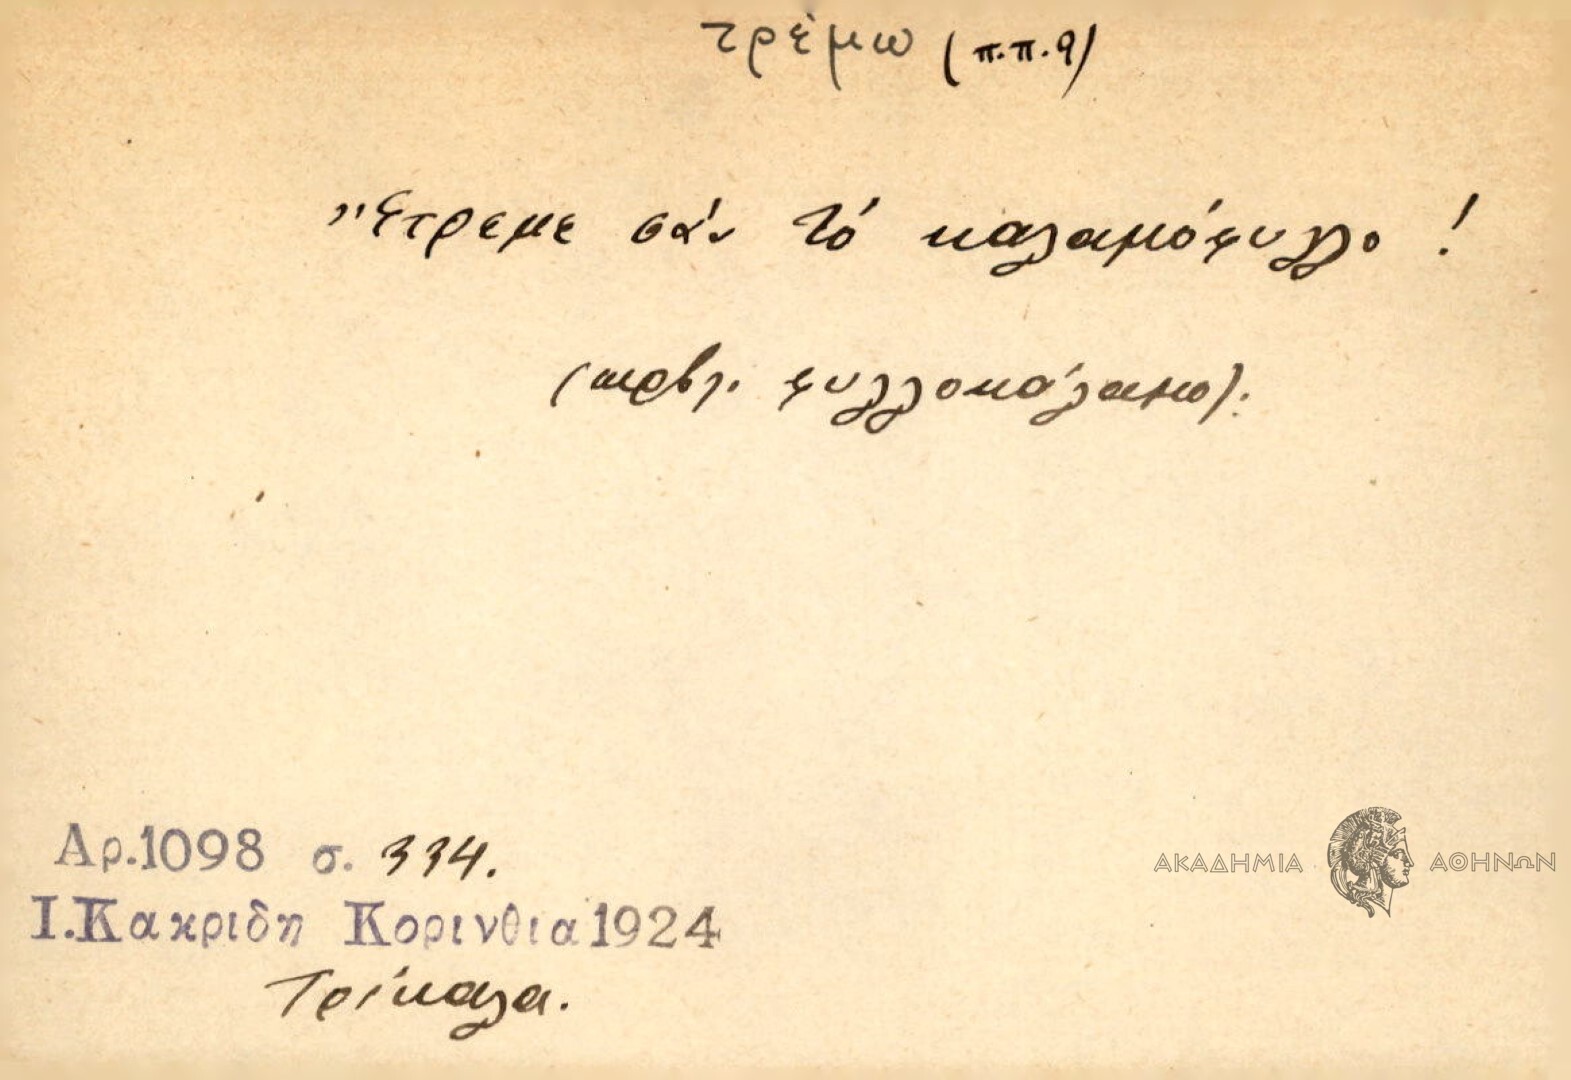 τρέμω (π.π.9)
"Έτρεμε σὰν τό καλαμόφυλλο !
(πρβλ. φυλλοκάλαμο).
Αρ.1098 σ. 334.
Ι.Κακριδη Κορινθια 1924
Τρίκαλα.
ΑΚΑΔΗΜΙΑ ΑΘΗΝΩΝ